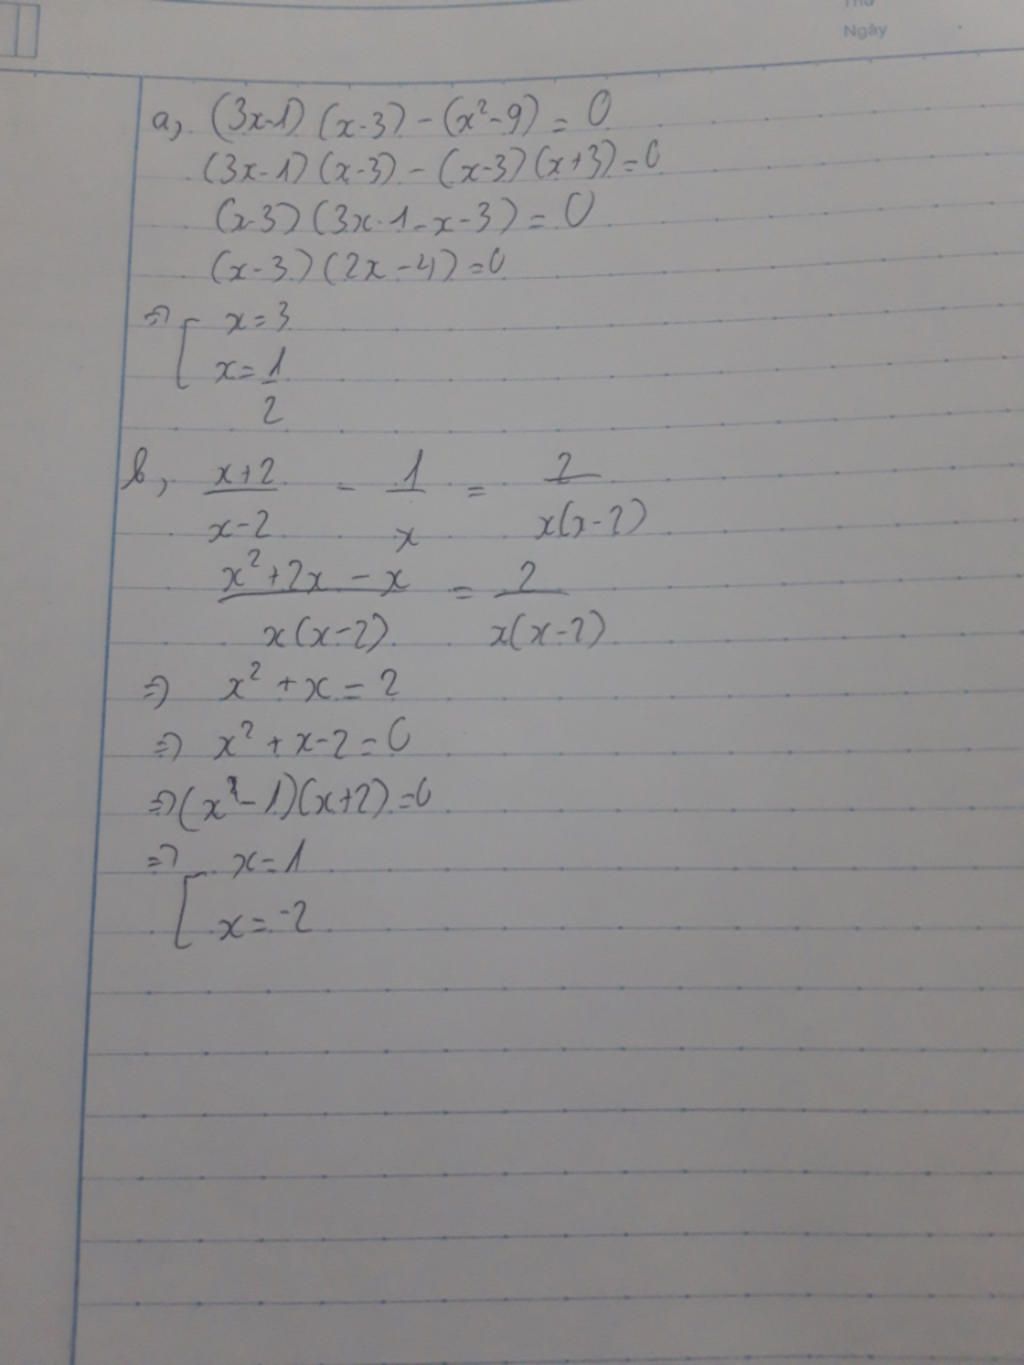 Thứ
Ngày
a, (3x-1)(x-3)-(x²-9)=0
(3x-1)(x-3)-(x-3)(x+3)=0
(x-3)(3x-1-x-3)=0
(x-3)(2x-4)=0
=> [ x=3
x=1/2
b, (x+2)/(x-2) - 1/x = 2/(x(x-2))
(x²+2x-x)/(x(x-2)) = 2/(x(x-2))
=> x²+x=2
=> x²+x-2=0
=> (x-1)(x+2)=0
=> [ x=1
x=-2